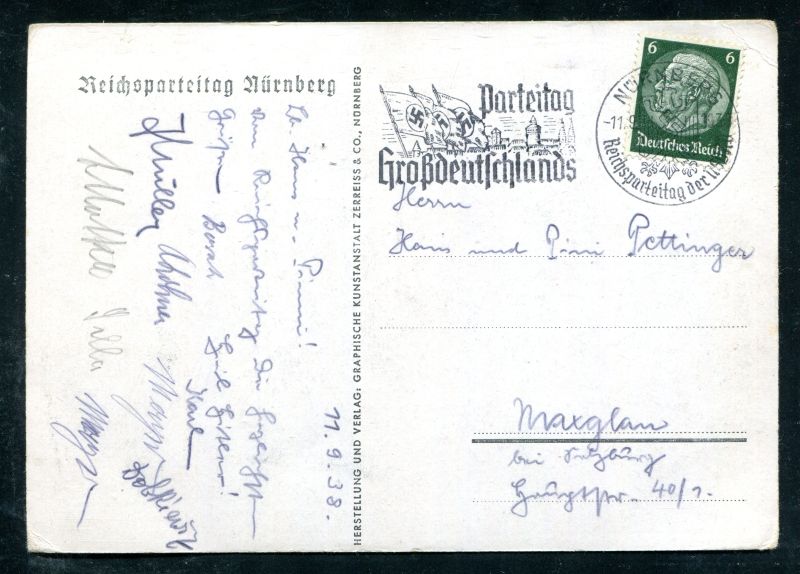 Reichsparteitag Nürnberg
Lb. Hans u. Pinni!
vom Reichsparteitag die herzlichsten
Grüße
Heil Hitler!
Karl
Müller
Mayer
Mayer
11.9.38.
HERSTELLUNG UND VERLAG: GRAPHISCHE KUNSTANSTALT ZERREISS & CO., NÜRNBERG
Parteitag
Großdeutschlands
NÜRNBERG
-11.9
Reichsparteitag der NSDAP
6 6
Deutsches Reich
Herrn
Hans und Pini Pettinger
Maxglan
bei Salzburg
Hauptstr. 40/1.